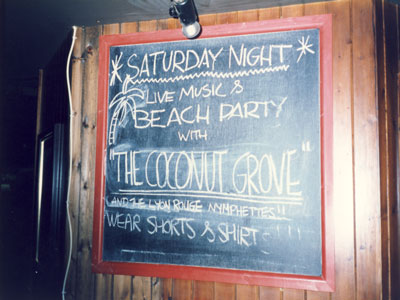 * SATURDAY NIGHT *
LIVE MUSIC &
BEACH PARTY
WITH
"THE COCONUT GROVE"
(AND THE LYON ROUGE NYMPHETTES!!
WEAR SHORTS & SHIRT !!!